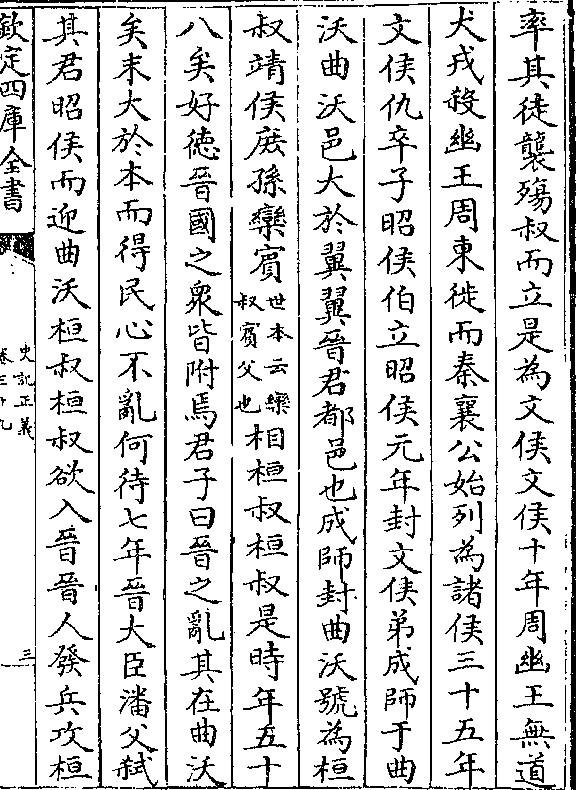 率其徒襲殤叔而立是為文侯文侯十年周幽王無道
犬戎殺幽王周東徙而秦襄公始列為諸侯三十五年
文侯仇卒子昭侯伯立昭侯元年封文侯弟成師于曲
沃曲沃邑大於翼翼晉君都邑也成師封曲沃號為桓
叔靖侯庶孫欒賓世本云欒叔賓父也相桓叔桓叔是時年五十
八矣好德晉國之衆皆附焉君子曰晉之亂其在曲沃
矣末大於本而得民心不亂何待七年晉大臣潘父弑
其君昭侯而迎曲沃桓叔桓叔欲入晉晉人發兵攻桓
欽定四庫全書
史記正義
卷三十九
三